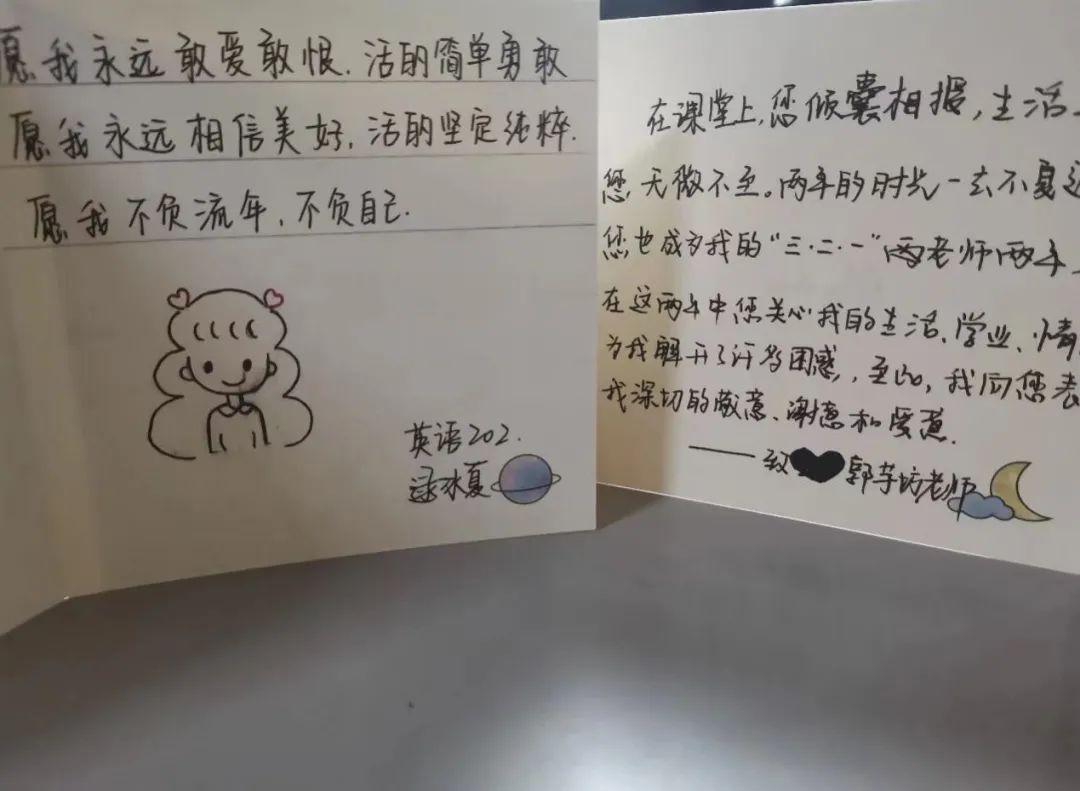 愿我永远敢爱敢恨.活的简单勇敢
愿我永远相信美好.活的坚定纯粹.
愿我不负流年.不负自己.
英语202.
逯冰夏
在课堂上,您倾囊相报,生活
您无微不至。两年的时光一去不复返
您也成为我的“三·二·一”两老师两年
在这两年中您关心我的生活、学业、情
为我解开了许多困惑,至此,我向您表
我深切的敬意、谢意和爱意.
——致郭芋坊老师